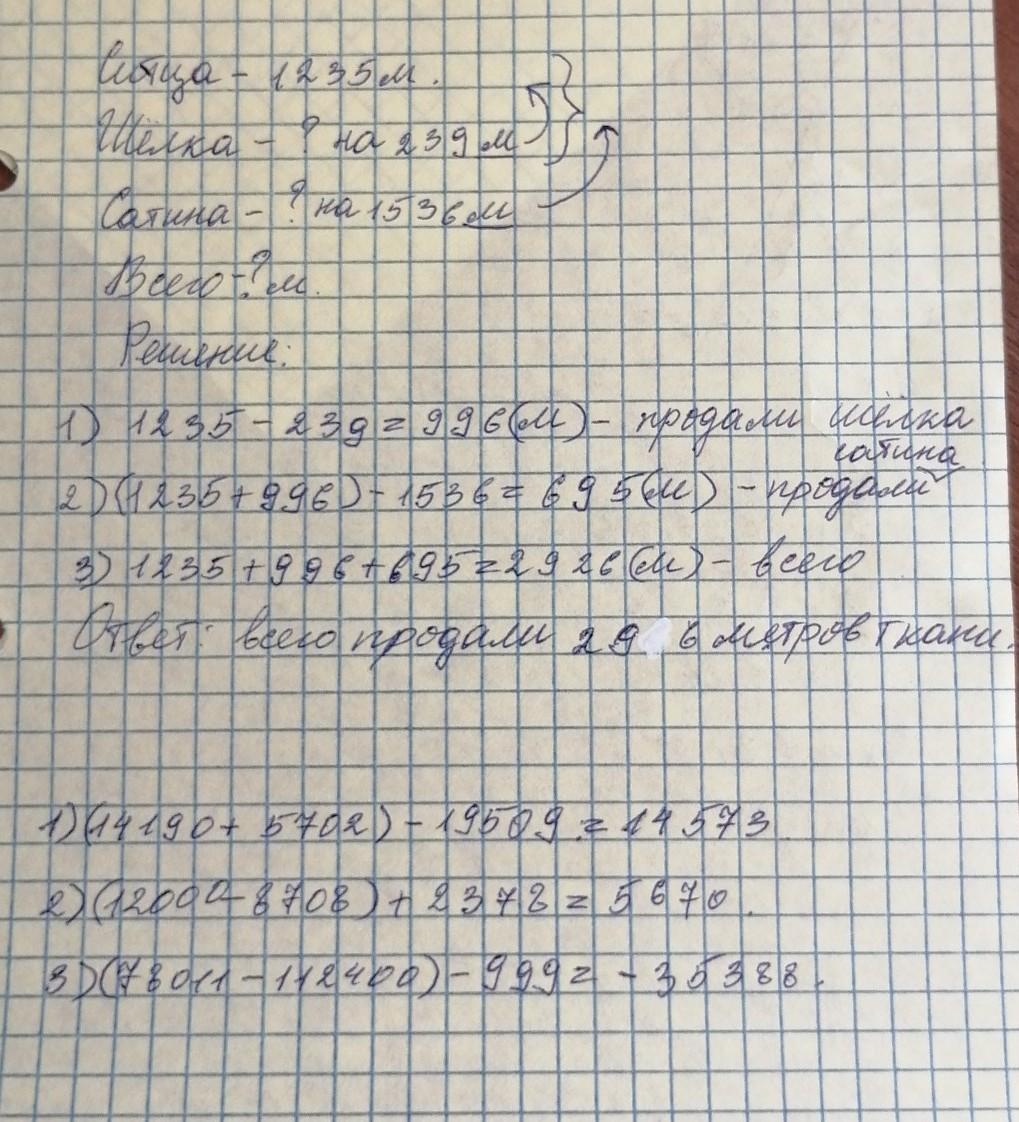 Ситца - 1235м.
Шёлка - ? на 239 м
Сатина - ? на 1536 м
Всего - ? м.
Решение:
1) 1235 - 239 = 996(м) - продали шёлка
сатина
2) (1235 + 996) - 1536 = 695(м) - продали
3) 1235 + 996 + 695 = 2926(м) - всего
Ответ: всего продали 29 6 метров ткани.
1) (14190 + 5702) - 19509 = 14573
2) (12000 - 8708) + 2378 = 5670.
3) (78011 - 112400) - 999 = - 35388.